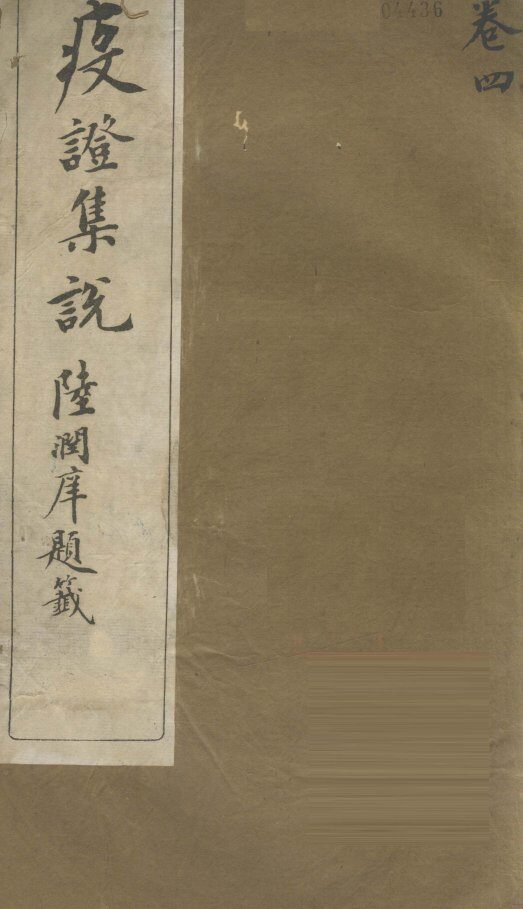 04436
卷四
疫證集說
陸潤庠題籤